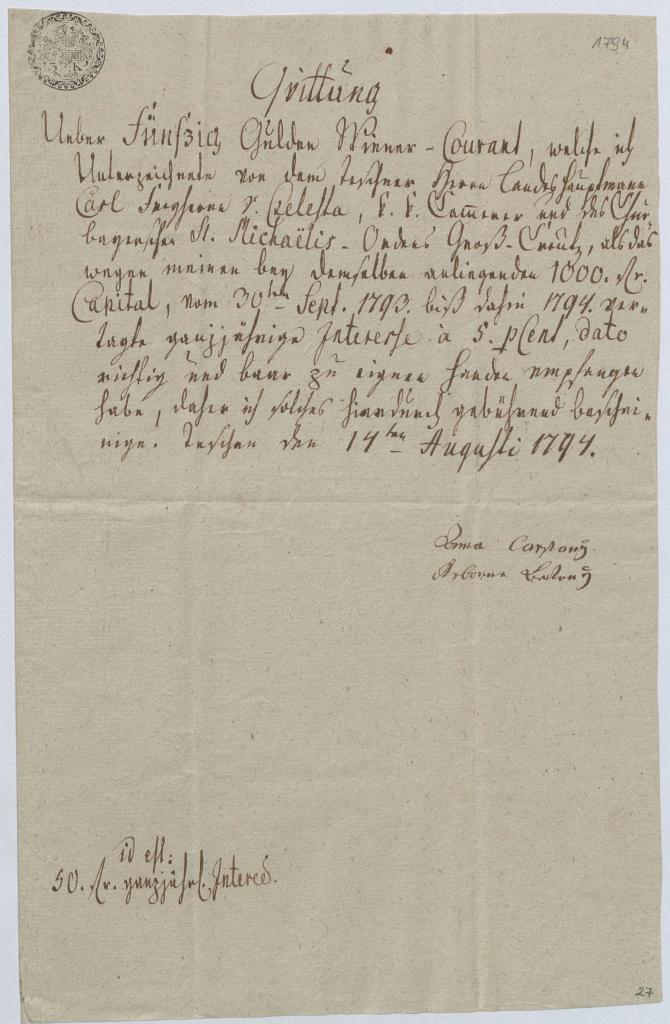 1794
3. K
Quittung
Ueber Fünfzig Gulden Wiener-Courant, welche ich
Unterzeichnete von dem Teschner Herrn Landeshauptmann
Carl Freyherrn v. Czelesta, k. k. Cammerer und des Chur-
bayerschen St. Michaëlis-Ordens Groß-Creutz, als das
wegen meinen bey demselben anliegenden 1000. flr.
Capital, vom 30ten Sept. 1793. biß dahin 1794. ver-
tagte ganzjährige Interesse à 5. pCent, dato
richtig und baar zu eignen Handen empfangen
habe, daher ich solches hierdurch gebührend beschei-
nige. Teschen den 14ten Augusti 1794.
Anna
Geborne
id est:
50. flr. ganzjährl. Interes.
27